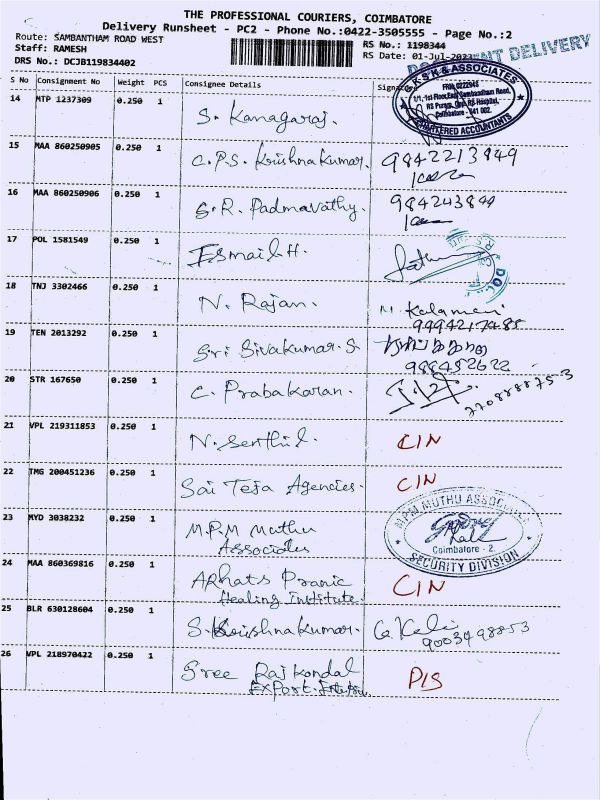 THE PROFESSIONAL COURIERS, COIMBATORE
Delivery Runsheet - PC2 - Phone No.:0422-3505555 - Page No.:2
Route: SAMBANTHAM ROAD WEST
RS No.: 1198344
Staff: RAMESH
RS Date: 01-Jul-2023
DELIVERY
DRS No.: DCJB119834402
S No Consignment No Weight PCS Consignee Details
K S K & ASSOCIATES
1/1, 1st Floor, East Sambantham Road,
RS Puram, Opp. RS Hospital,
Coimbatore - 641 002.
CHARTERED ACCOUNTANTS
14 MTP 1237309 0.250 1 S. Kanagaraj.
15 MAA 860250905 0.250 1 C.P.S. Krishna Kumar. 9842213849
16 MAA 860250906 0.250 1 S.R. Padmavathy. 984243849
17 POL 1581549 0.250 1 Esmail H.
18 TNJ 3302466 0.250 1 N. Rajan.
9994217485
19 TEN 2013292 0.250 1 Sri Sivakumar. S
988452622
20 STR 167650 0.250 1 C. Prabakaran. 7708887 5 3
21 VPL 219311853 0.250 1 N. Senthil. CIN
22 TMG 200451236 0.250 1 Sai Teja Agencies. CIN
23 MYD 3038232 0.250 1 M.P.M Muthu
Associates
M.P.M MUTHU ASSOCIATES
Coimbatore - 2.
SECURITY DIVISION
24 MAA 860369816 0.250 1 ARhats Pranic
Healing Institute. CIN
25 BLR 630128604 0.250 1 S. Krishna Kumar. G. Kala
9003498853
26 VPL 218970422 0.250 1 Sree Raj Kondal
Export. P/S